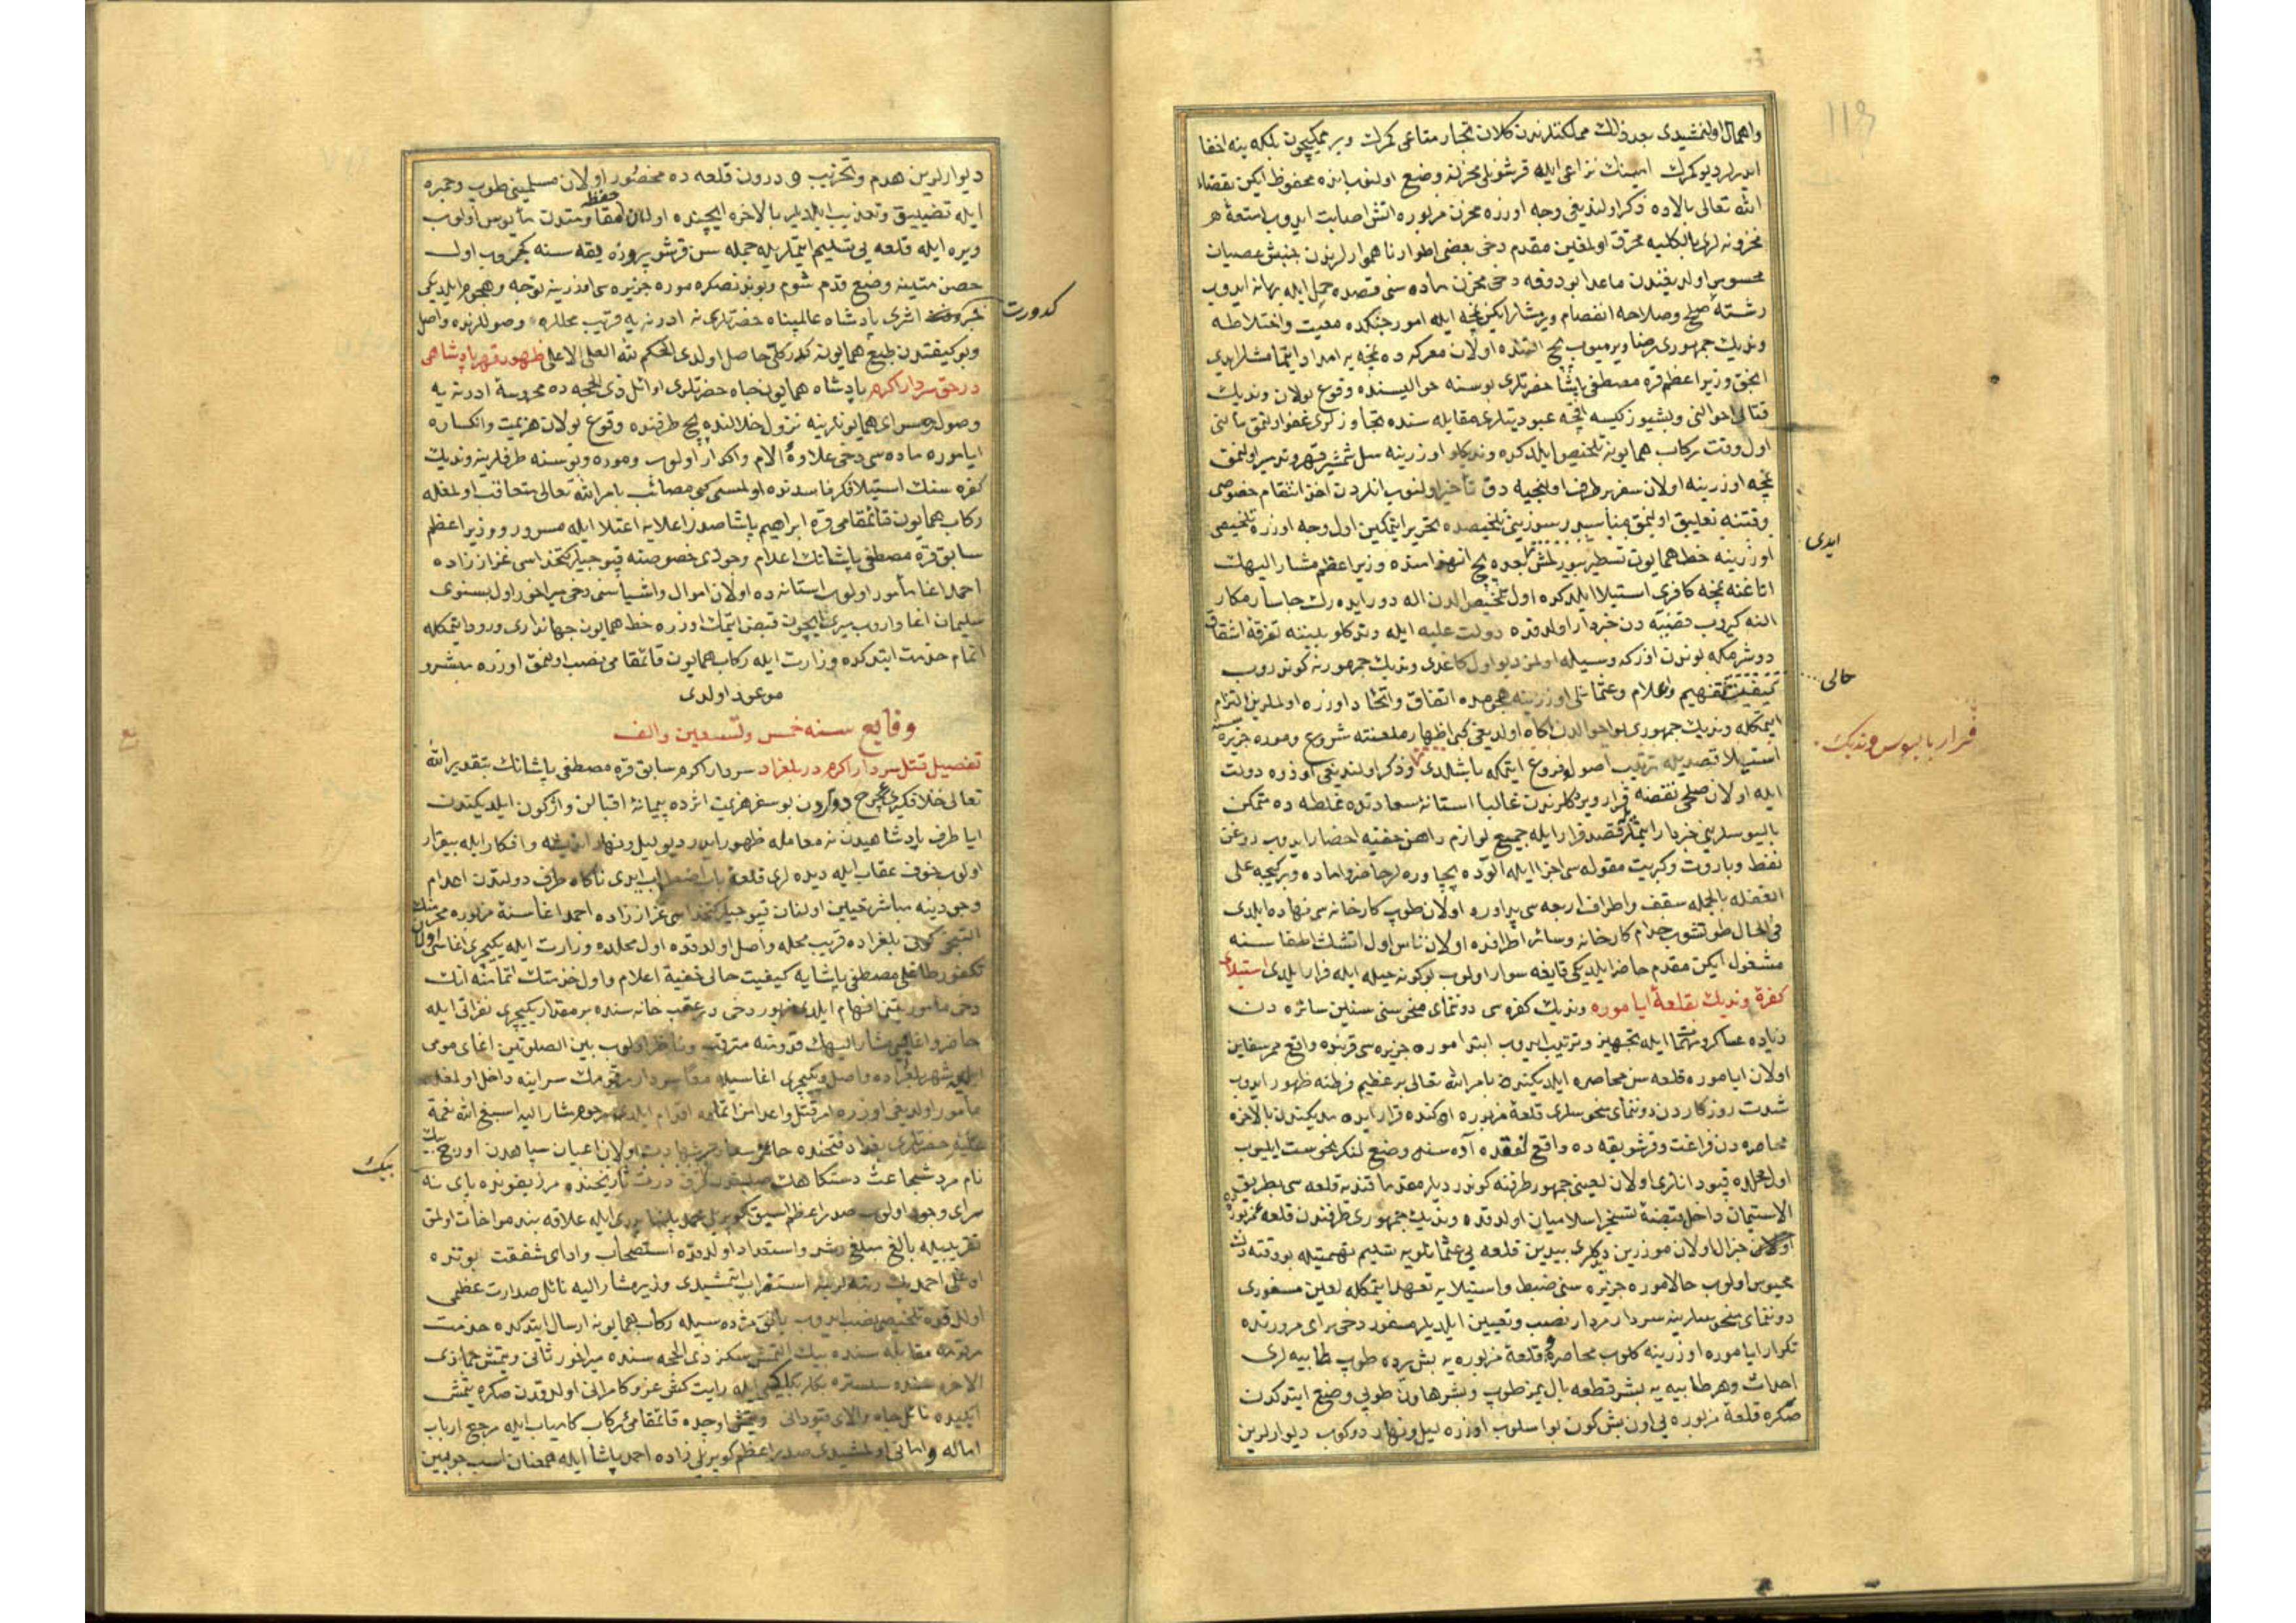 واهمال اولنمشیدی بعد ذلك مملکتلرندن کلان تجار متاعی کمرك ویرممکیچون بلکه ینه اخفا
ایدرلر دیو کمرك امینینك نزاعی ایله قرشونلی مخزنه وضع اولنوب انده محفوظ ایکن بقضاء
الله تعالی بالاده ذکر اولندیغی وجه اوزره مخزن مزبوره اتش اصابت ایدوب امتعهٔ هر
مخزونه لری بالکلیه محرق اولمغین مقدم دخی بعضی اطوار ناهموارلرندن جنبش عصیان
محسوس اولدیغندن ماعدا بو دفعه دخی مخزن ماده سنی قصده حمل ایله بهانه ایدوب
رشتهٔ صلح وصلاحه انفصام ویرمشلر ایکن نمچه ایله امور جنکده معیت واختلاطه
وندیك جمهوری رضا ویرمیوب بچ التنده اولان معرکه ده نمچه یه امداد ایتمامشلر ایدی
انجق وزیر اعظم قره مصطفی پاشا حضرتلری بوسنه حوالیسنده وقوع بولان وندیك
قتالی احوالنی وبشیوز کیسه اقچه عبودیتلری مقابله سنده تجاوزلری عفو اولنمق مألنی
اول وقت رکاب همایونه تلخیص ایلدکده وندیکلو اوزرینه سل شمشیر قهر وتدمیر اولنمق
نمچه اوزرینه اولان سفر برطرف اولنجیه دق تأخیر اولنوب انلردن اخذ انتقام خصوصی
وقتنه تعلیق اولنمق مناسبدر سوزینی تلخیصده تحریر ایتمکین اول وجه اوزره تلخیصی
ایدی
اوزرینه خط همایون تسطیر بیورلمش بعده بچ انهزامنده وزیر اعظم مشار الیهك
اتاغنه نمچه کافری استیلا ایلدکده اول تلخیص الدن اله دور ایده رك چاسار مکار
النه کیروب قضیه دن خبردار اولدقده دولت علیه ایله وندکلو بیننه تفرقه اشقاق
دوشرمکه بوندن اوزکه وسیله اولمز دیو اول کاغدی وندیك جمهورینه کوندروب
حالی
کیفیت تفهیم واعلام وعثمانلی اوزرینه هجومده اتفاق واتحاد اوزره اولملرین التزام
ایتمکله وندیك جمهوری بو احوالدن اکاه اولدیغی کبی اظهار ملعنته شروع وموره جزیره سنه
فرار بالیوس وندیك
استیلا قصدیله ترتیب اصول وفروع ایتمکه باشلدی وذکر اولندیغی اوزره دولت
ایله اولان صلحی نقضه قرار ویردکلرندن غالبا استانهٔ سعادتده غلطه ده متمکن
بالیوسلرینی خبردار ایتمشلر قصد فرار ایله جمیع لوازم راهن خفیه احضار ایدوب روغن
نفط وباروت وکبریت مقوله سی اجزا ایله الوده پچاوره لر حاضر واماده وبر کیجه علی
الغفله بالجمله سقف واطراف اربعه سی پر اوره اولان طوپ کارخانه سی نهاده ایلدی
فی الحال طوتشوب خدام کارخانه وسائر اطرافده اولان ناس اول اتشك اطفاسنه
مشغول ایکن مقدم حاضر ایلدیکی قایغه سوار اولوب بو کونه حیله ایله فرار ایلدی استیلاء
کفرهٔ وندیك بقلعهٔ ایاموره وندیك کفره سی دوننمای منحوسنی سنین سائره دن
زیاده عساکر ومهما ایله تجهیز وترتیب ایدوب ابتدا موره جزیره سی قربنده واقع ممر سفاین
اولان ایاموره قلعه سن محاصره ایلدیکنده بامر الله تعالی بر عظیم فرطنه ظهور ایدوب
شدت روزکاردن دوننمای منحوسلری قلعهٔ مزبوره اوکنده قرار ایده مدیکندن بالاخره
محاصره دن فراغت وقرشو یقه ده واقع لفقده اده سنه وضع لنکر نحوست ایلیوب
اول محلده قپودانلری اولان لعینی جمهور طرفنه کوندردیلر مقدما قندیه قلعه سی بطریق
الاستیمان داخل قبضهٔ تسخیر اسلامیان اولدقده وندیك جمهوری طرفندن قلعهٔ مزبورده
اولان جنرال اولان موزرین دیکلری بیدین قلعه یی عثمانلویه تسلیم تهمتیله بو وقته دك
محبوس اولوب حالا موره جزیره سنی ضبط واستیلایه تعهد ایتمکله لعین مسفوری
دوننمای منحوسلرینه سردار مردار نصب وتعیین ایلدیلر مسفور دخی برای مرورنده
تکرار ایاموره اوزرینه کلوب محاصره وقلعهٔ مزبوره یه بش یرده طوپ طابیه لری
احداث وهر طابیه یه بشر قطعه بال یمز طوپ وبشر هاون طوپی وضع ایتدکدن
صکره قلعهٔ مزبوره یی اون بش کون بو اسلوب اوزره لیل ونهار دوکوب دیوارلرین
دیوارلرین هدم وتخریب و درون قلعه ده محصور اولان مسلمینی طوپ وخمبره
ایله تضییق وتعذیب ایلدیلر بالاخره ایچنده اولنلر حفظ مقاومتدن مأیوس اولوب
ویره ایله قلعه یی تسلیم ایتملریله جمله سن قرشو پروزه یقه سنه کچروب اول
حصن متینه وضع قدم شوم وبوندنصکره موره جزیره سی اوزرینه توجه وهجوم ایلدیکی
کدورت
اثری پادشاه عالمپناه حضرتلری نه ادرنه یه قریب محللره وصوللرنده واصل
وبو کیفیتدن طبع همایونه کدر کلی حاصل اولدی الحکم لله العلی الاعلی ظهور قهر پادشاهی
در حق سردار اکرم پادشاه همایون جاه حضرتلری اوائل ذی الحجه ده محروسهٔ ادرنه یه
وصول وسرای همایونلرینه نزول خلالنده بچ طرفنده وقوع بولان هزیمت وانکساره
ایاموره ماده سی دخی علاوهٔ الام واکدار اولوب وموره وبوسنه طرفلرینه وندیك
کفره سنك استیلا فکر فاسدنده اولمسی کبی مصائب بامر الله تعالی متعاقب اولمغله
رکاب همایون قائمقامی قره ابراهیم پاشا صدر اعلایه اعتلا ایله مسرور ووزیر اعظم
سابق قره مصطفی پاشانك اعدام وجودی خصوصنه قپوجیلر کتخداسی غزاز زاده
احمد اغا مأمور اولوب استانه ده اولان اموال واشیاسنی دخی میراخور اول بسنوی
سلیمان اغا واروب میری ایچون قبض ایتمك اوزره خط همایون جهانداری ورود ایتمکله
اتمام خدمت ایتدکده وزارت ایله رکاب همایون قائمقامی نصب اولنمق اوزره مبشر و
موعود اولدی
وقایع سنه خمس وتسعین والف
تفصیل قتل سردار اکرم در بلغراد سردار اکرم سابق قره مصطفی پاشانك بتقدیر الله
تعالی خلافکیری چرخ دوارون بو سفر هزیمت اثرده پیمانهٔ اقبالن واژکون ایلدیکندن
ایا طرف پادشاهیدن نه معامله ظهور ایدر دیو لیل ونهار اندیشه وافکار ایله بیقرار
اولوب خوف عقاب ایله دیده لری قلعهٔ باب اضطراب ایدی ناکاه طرف دولتدن اعدام
وجودینه مباشر تعیین اولنان قپوجیلر کتخداسی غزاز زاده احمد اغا سنهٔ مزبوره محرمنك
التنجی کونی بلغراده قریب محله واصل اولدقده اول محلده وزارت ایله یکیچری اغاسی اولان
تکفور طاغلی مصطفی پاشایه کیفیت حالی خفیة اعلام واول خدمتك اتمامنه انك
دخی مأموریتن افهام ایلدی مزبور دخی در عقب خانه سنده بر مقدار یکیچری نفراتی ایله
حاضر واغای مشار الیهك قدومنه مترقب وناظر اولوب بین الصلوتین اغای مومی
الیه شهر بلغراده واصل ویکیچری اغاسیله معا سردار مرقومك سراینه داخل اولمغله
مأمور اولدیغی اوزره امر قتل واعدامن اتمامه اقدام ایلدی مرحوم مشار الیه اسبغ الله نعمة
علیه حضرتلری بغداد فتحنده جاهز سعادت شهادت اولان اعیان سپاهدن اورج بك
بیك
نام مرد شجاعت دستکاهك صلبندن قرق درت تاریخنده مرزیفونده پای نه
سرای وجود اولوب صدر اعظم اسبق کوپریلی محمد پاشا پدری ایله علاقه بند مواخات اولمق
تقریبیله بالغ مبلغ رشد واستعداد اولدقده استصحاب وادای شفقت بوتنده
اوغلی احمد بك رتبه لرینه استقراب ایتمشیدی وزیر مشار الیه نائل صدارت عظمی
اولدقده تلخیصی نصب ایدوب یانوه مژده سیله رکاب همایونه ارسال ایتدکده خدمت
مرقومه مقابله سنده بیك التمش سکز ذی الحجه سنده میراخور ثانی ویتمش جماذی
الاخره سنده سلستره بکلربکیلکی ایله رایت کش عز وکامرانی اولدقدن صکره یتمش
ایکیده نائل جاه والای قپودانی ویتمش اوچده قائمقامئ رکاب کامیاب ایله مرجع ارباب
اماله وامانی اولمشیدی صدر اعظم کوپریلی زاده احمد پاشا ایله همعنان اسب جوبین